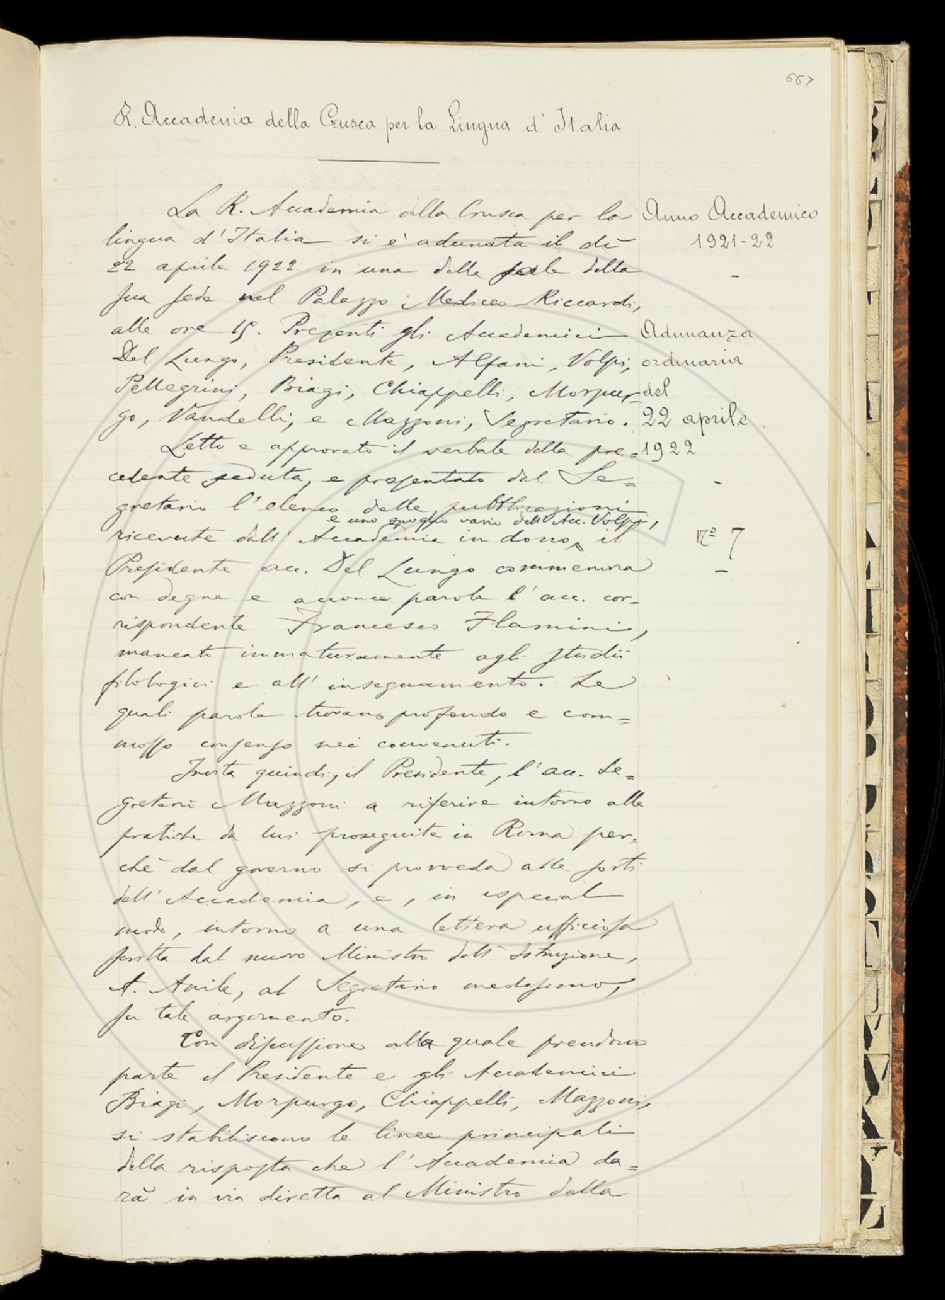 667
R. Accademia della Crusca per la Lingua d'Italia
La R. Accademia della Crusca per la
lingua d'Italia si è adunata il dì
22 aprile 1922 in una delle sale della
sua sede nel Palazzo Mediceo Riccardi,
alle ore 15. Presenti gli Accademici
Del Lungo, Presidente, Alfani, Volpi,
Pellegrini, Biagi, Chiappelli, Morpur-
go, Vandelli, e Mazzoni, Segretario.
Letto e approvato il verbale della pre=
cedente seduta, e presentato dal Se=
gretario l'elenco delle pubblicazioni
e uno spoglio vario dell'Acc. Volpi,
ricevute dall'Accademia in dono, il
Presidente acc. Del Lungo commemora
con degne e acconce parole l'acc. cor-
rispondente Francesco Flamini,
mancato immaturamente agli studii
filologici e all'insegnamento. Le
quali parole trovano profondo e com=
mosso consenso nei convenuti.
Invita quindi, il Presidente, l'acc. Se=
gretario Mazzoni a riferire intorno alle
pratiche da lui proseguite in Roma per-
chè dal governo si provveda alle sorti
dell'Accademia, e, in ispecial
modo, intorno a una lettera ufficiosa
scritta dal nuovo Ministro dell'Istruzione,
A. Anile, al Segretario medesimo,
su tale argomento.
Con discussione alla quale prendono
parte il Presidente e gli Accademici
Biagi, Morpurgo, Chiappelli, Mazzoni,
si stabiliscono le linee principali
della risposta che l'Accademia da=
rà in via diretta al Ministro della
Anno Accademico
1921-22
Adunanza
ordinaria
del
22 aprile
1922
nº 7